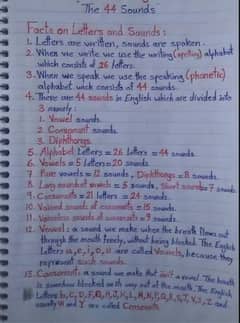 The 44 Sounds
Facts on Letters and Sounds:
1. Letters are written, sounds are spoken.
2. When we write we use the writing (spelling) alphabet
which consists of 26 letters.
3. When we speak we use the speaking (phonetic)
alphabet wich consists of 44 sounds.
4. There are 44 sounds in English which are divided into
3 namely:
1. Vowel sounds.
2. Consonant sounds.
3. Diphthongs.
5. Alphabet Letters = 26 Letters = 44 sounds.
6. Vowels = 5 Letters = 20 sounds.
7. Pure vowels = 12 sounds, Diphthongs = 8 sounds.
8. Long sounds of vowels = 5 sounds, Short sounds = 7 sounds.
9. Consonants = 21 letters = 24 sounds.
10. Voiced sounds of consonants = 15 sounds.
11. Voiceless sounds of consonants = 9 sounds.
12. Vowel: a sound we make when the breath flows out
through the mouth freely, without being blocked. The English
Letters a, e, i, o, u are called Vowels, because they
represent such sounds.
13. Consonant: a sound we make that isn't a vowel. The breath
is somehow blocked on its way out of the mouth. The English
Letters b, C, D, F, G, H, J, K, L, M, N, P, Q, R, S, T, V, X, Z and
usually W and Y are called Consonants.